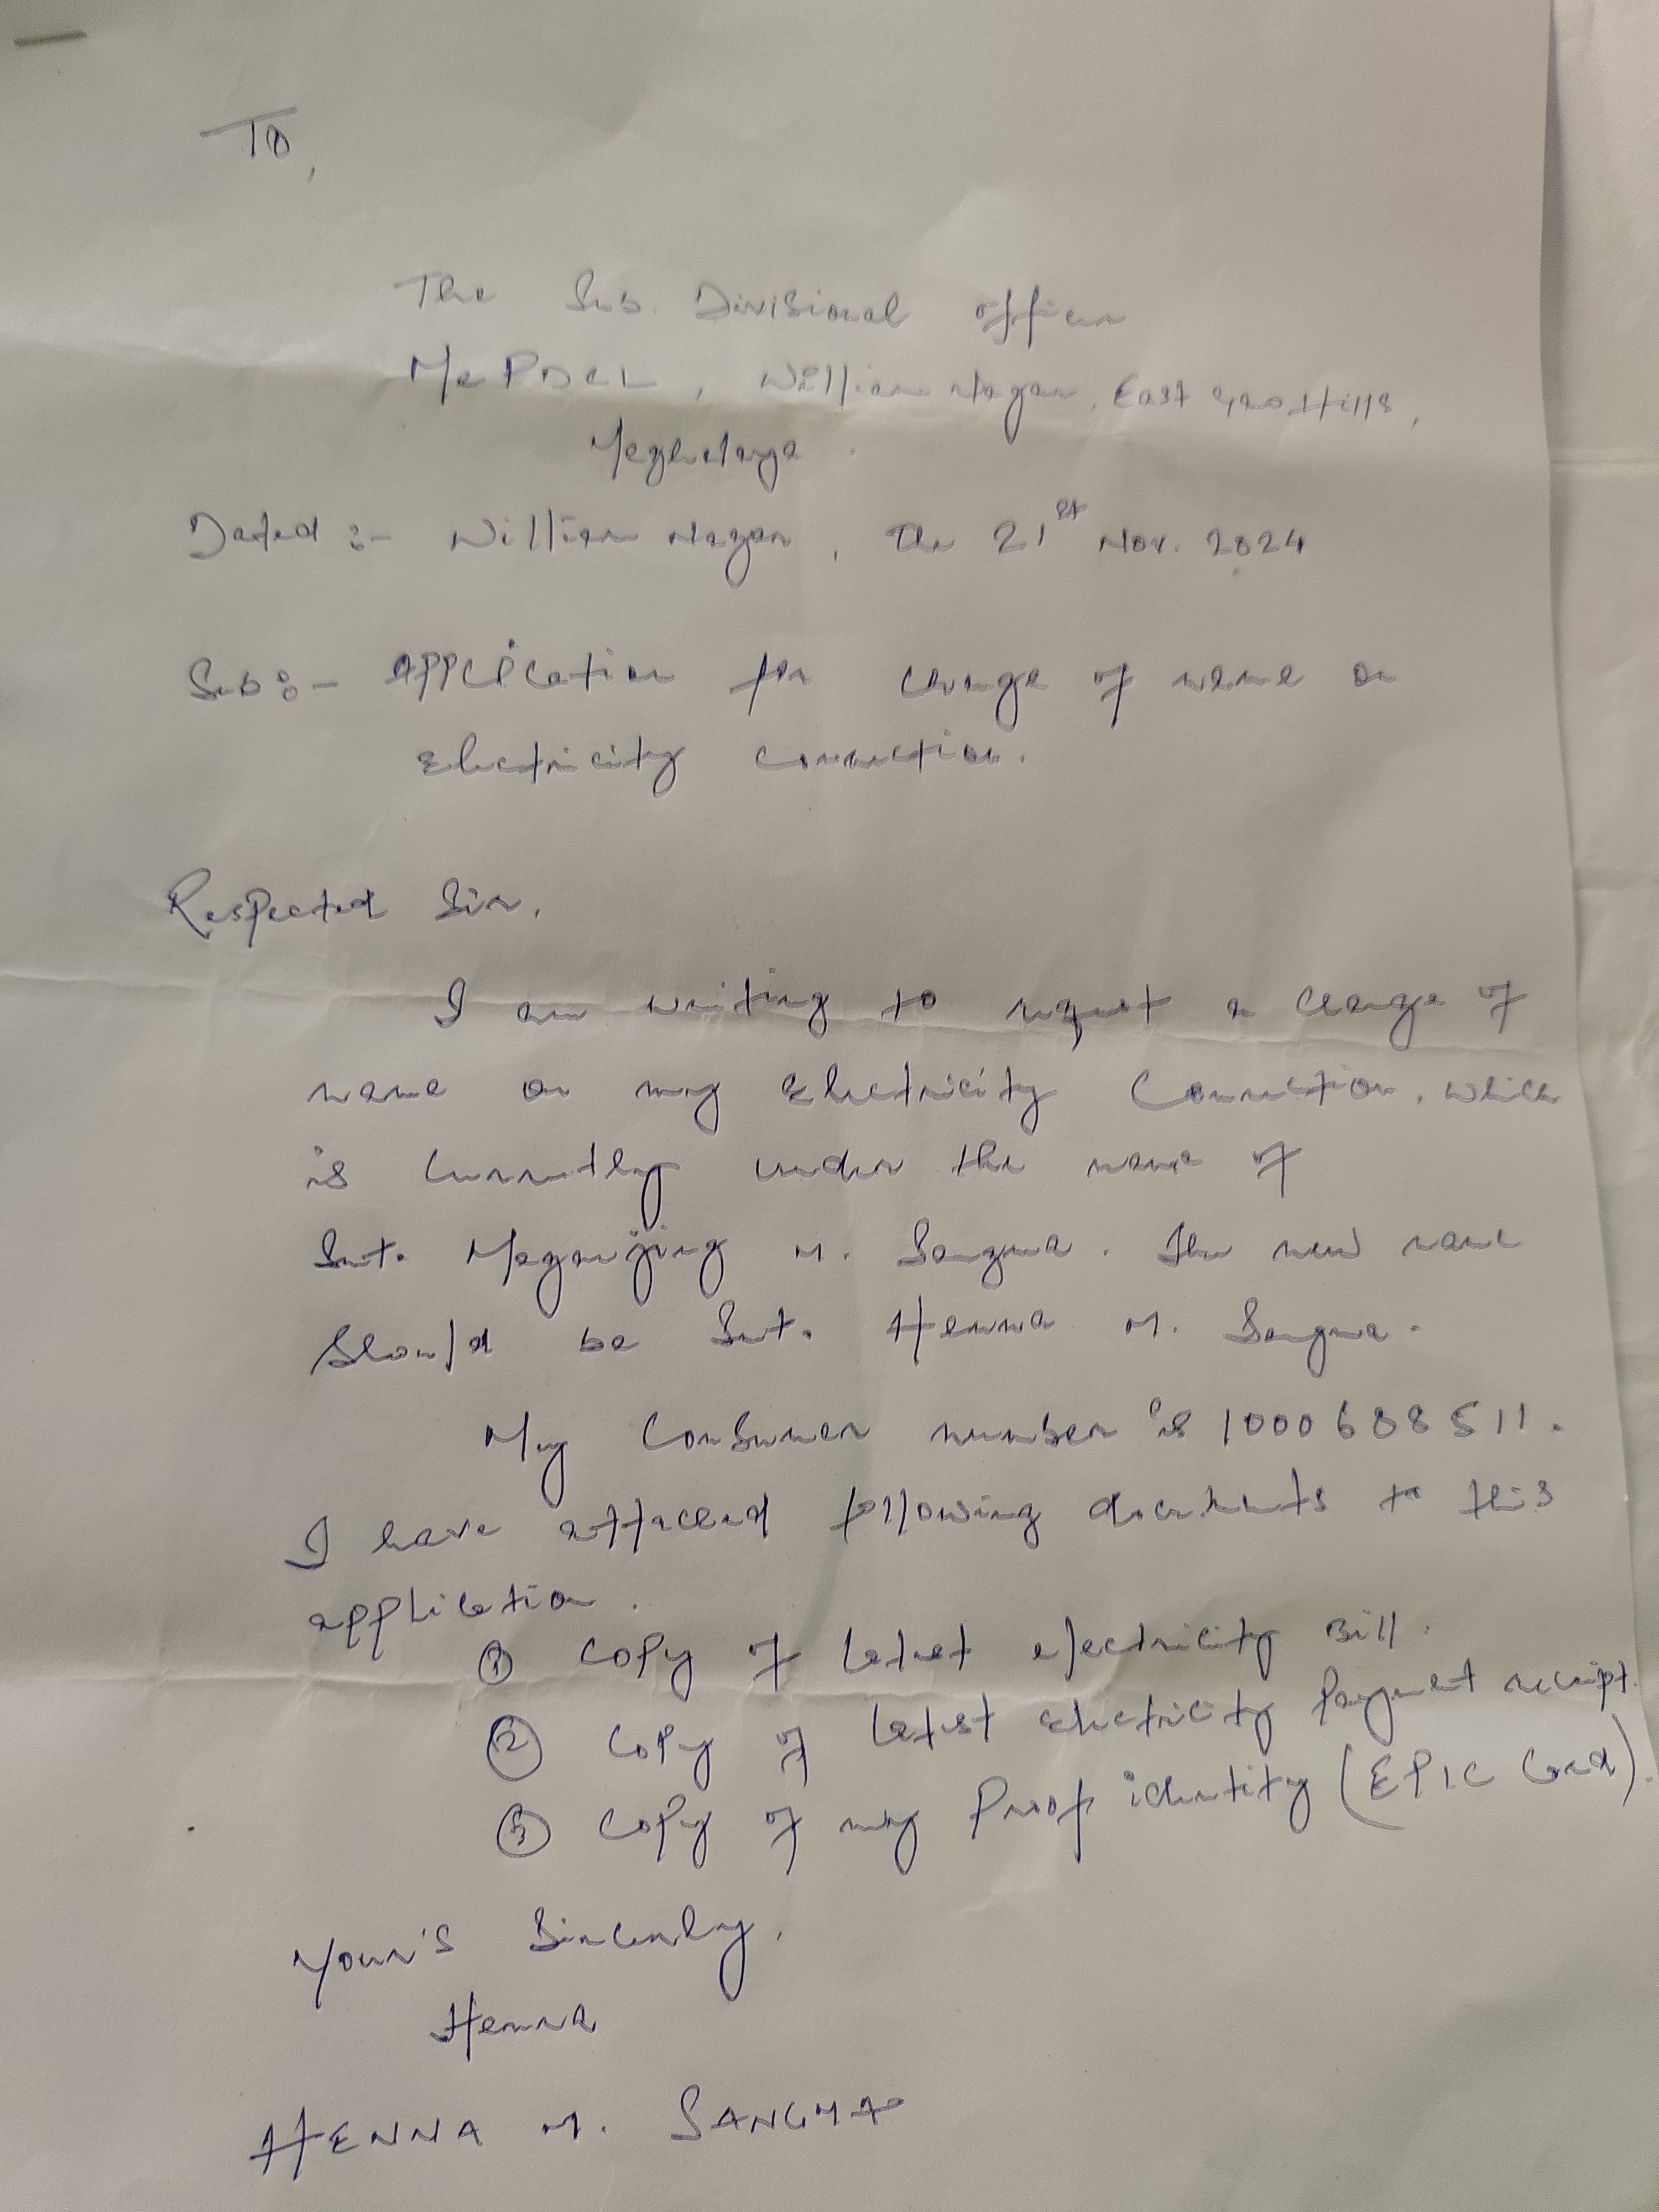 To,
The Sub. Divisional officer
MePDCL, William Nagar, East Garo Hills,
Meghalaya.
Dated :- William Nagar, The 21st Nov. 2024
Sub :- Application for change of name on
Electricity Connection.
Respected Sir,
I am writing to request a change of
name on my Electricity Connection, which
is currently under the name of
Smt. Meganjing M. Sangma. The new name
should be Smt. Henna M. Sangma.
My Consumer number is 1000688511.
I have attached following documents to this
application.
① Copy of latest electricity Bill.
② Copy of latest Electricity Payment receipt.
③ Copy of my Proof identity (EPIC Card).
Your's Sincerely,
Henna
HENNA M. SANGMA